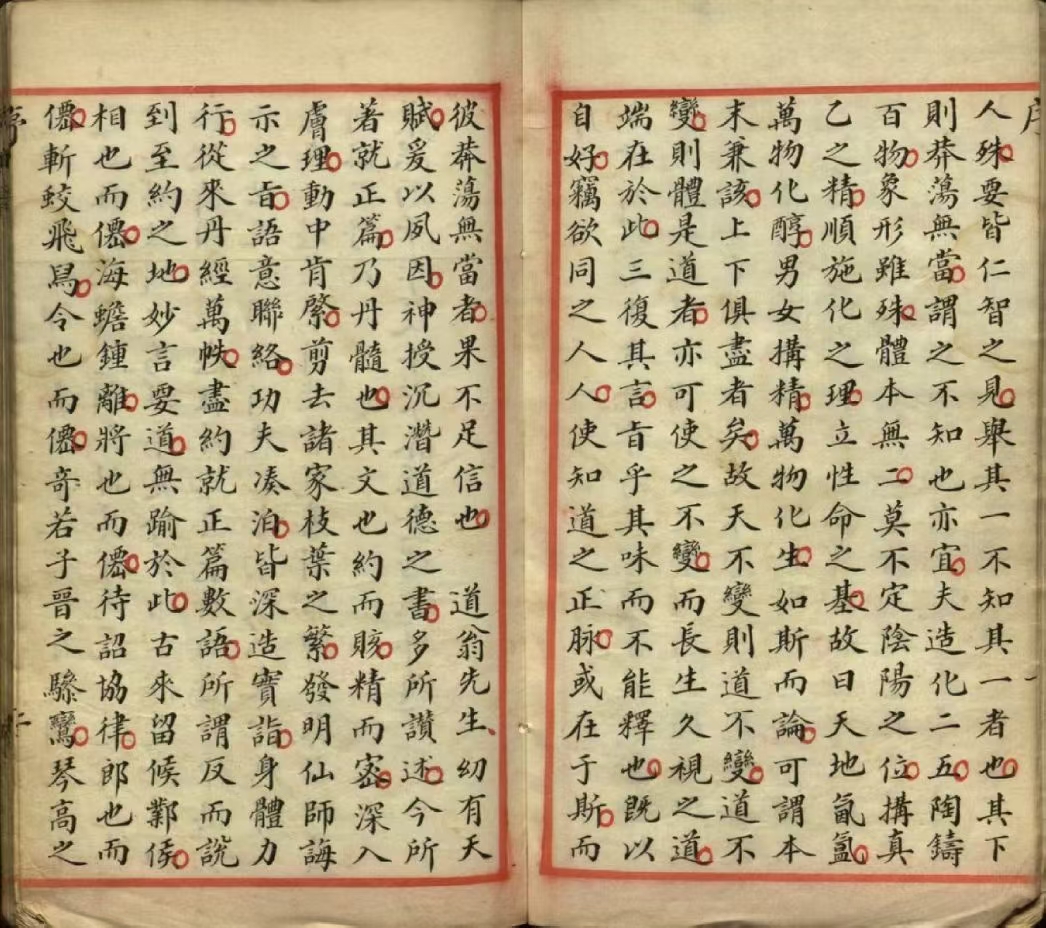 序
人殊要皆仁智之見舉其一不知其一者也其下
則莽蕩無當謂之不知也亦宜夫造化二五陶鑄
百物象形雖殊體本無二莫不定陰陽之位搆真
乙之精順施化之理立性命之基故曰天地氤氳
萬物化醇男女搆精萬物化生如斯而論可謂本
末兼該上下俱盡者矣故天不變則道不變道不
變則體是道者亦可使之不變而長生久視之道
端在於此三復其言旨乎其味而不能釋也既以
自好竊欲同之人人使知道之正脉或在于斯而
彼莽蕩無當者果不足信也 道翁先生幼有天
賦爰以夙因神授沉潛道德之書多所讚述今所
著就正篇乃丹髓也其文也約而賅精而密深入
膚理動中肯綮剪去諸家枝葉之繁發明仙師誨
示之旨語意聯絡功夫凑泊皆深造實詣身體力
行從來丹經萬帙盡約就正篇數語所謂反而說
到至約之地妙言要道無踰於此古來留候鄴侯
相也而僊海蟾鍾離將也而僊待詔協律郎也而
僊斬蛟飛舄令也而僊奇若子晉之驂鸞琴高之